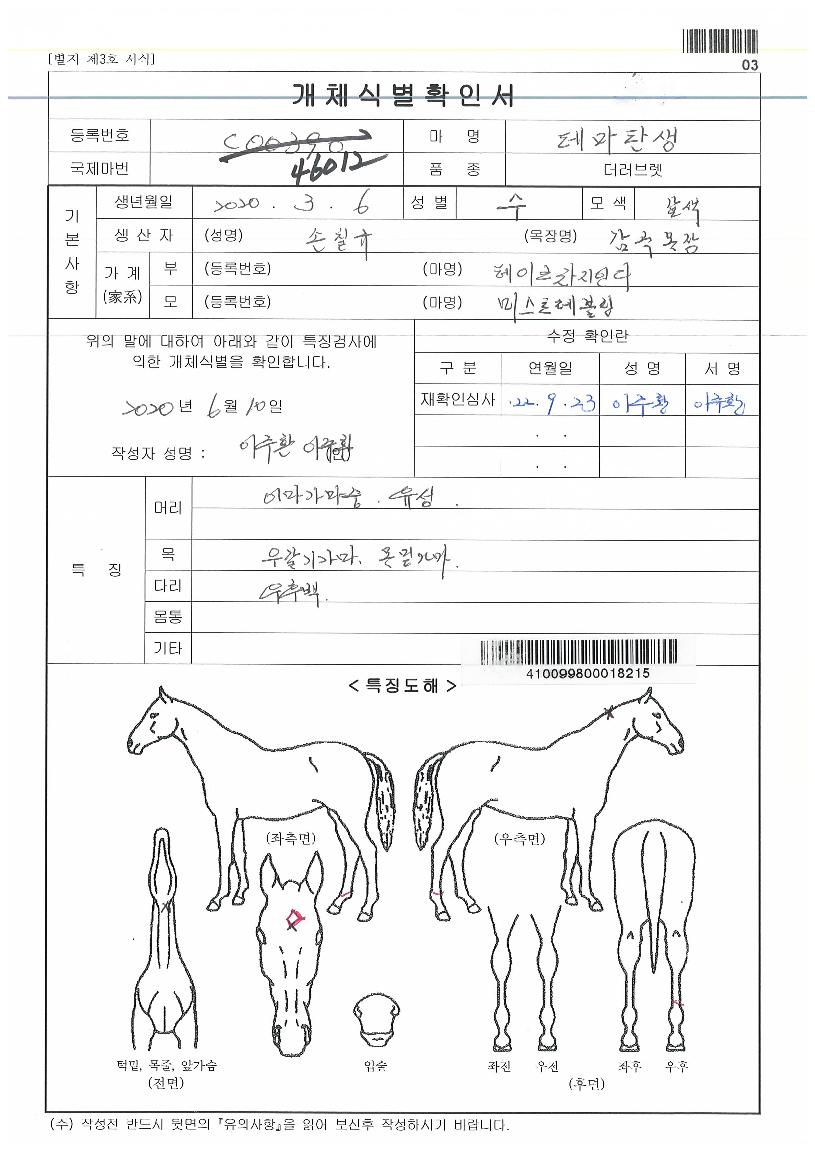 [별지 제3호 서식]
03
개체식별확인서
등록번호 C00390 46012 마 명 테파탄생
국제마번 품 종 더러브렛
기본사항
생년월일 2020 . 3 . 6 성 별 수 모 색 갈색
생 산 자 (성명) 손칠규 (목장명) 감곡목장
가 계 (家系) 부 (등록번호) (마명)
모 (등록번호) (마명) 미스트데블림
위의 말에 대하여 아래와 같이 특징검사에
의한 개체식별을 확인합니다.
2020 년 6 월 10 일
작성자 성명 : 이주환 이주환 (인)
수정 확인란
구 분 연월일 성 명 서 명
재확인심사 '22. 9. 23 이주환 이주환
. .
. .
특 징
머리 이마가마중 . 유성 .
목 우갈기가마. 목밑가마.
다리 우후백.
몸통
기타
410099800018215
< 특징도해 >
(좌측면) (우측면)
턱밑, 목줄, 앞가슴 입술 좌전 우전 좌후 우후
(전면) (후면)
(주) 작성전 반드시 뒷면의 『유의사항』을 읽어 보신후 작성하시기 바랍니다.